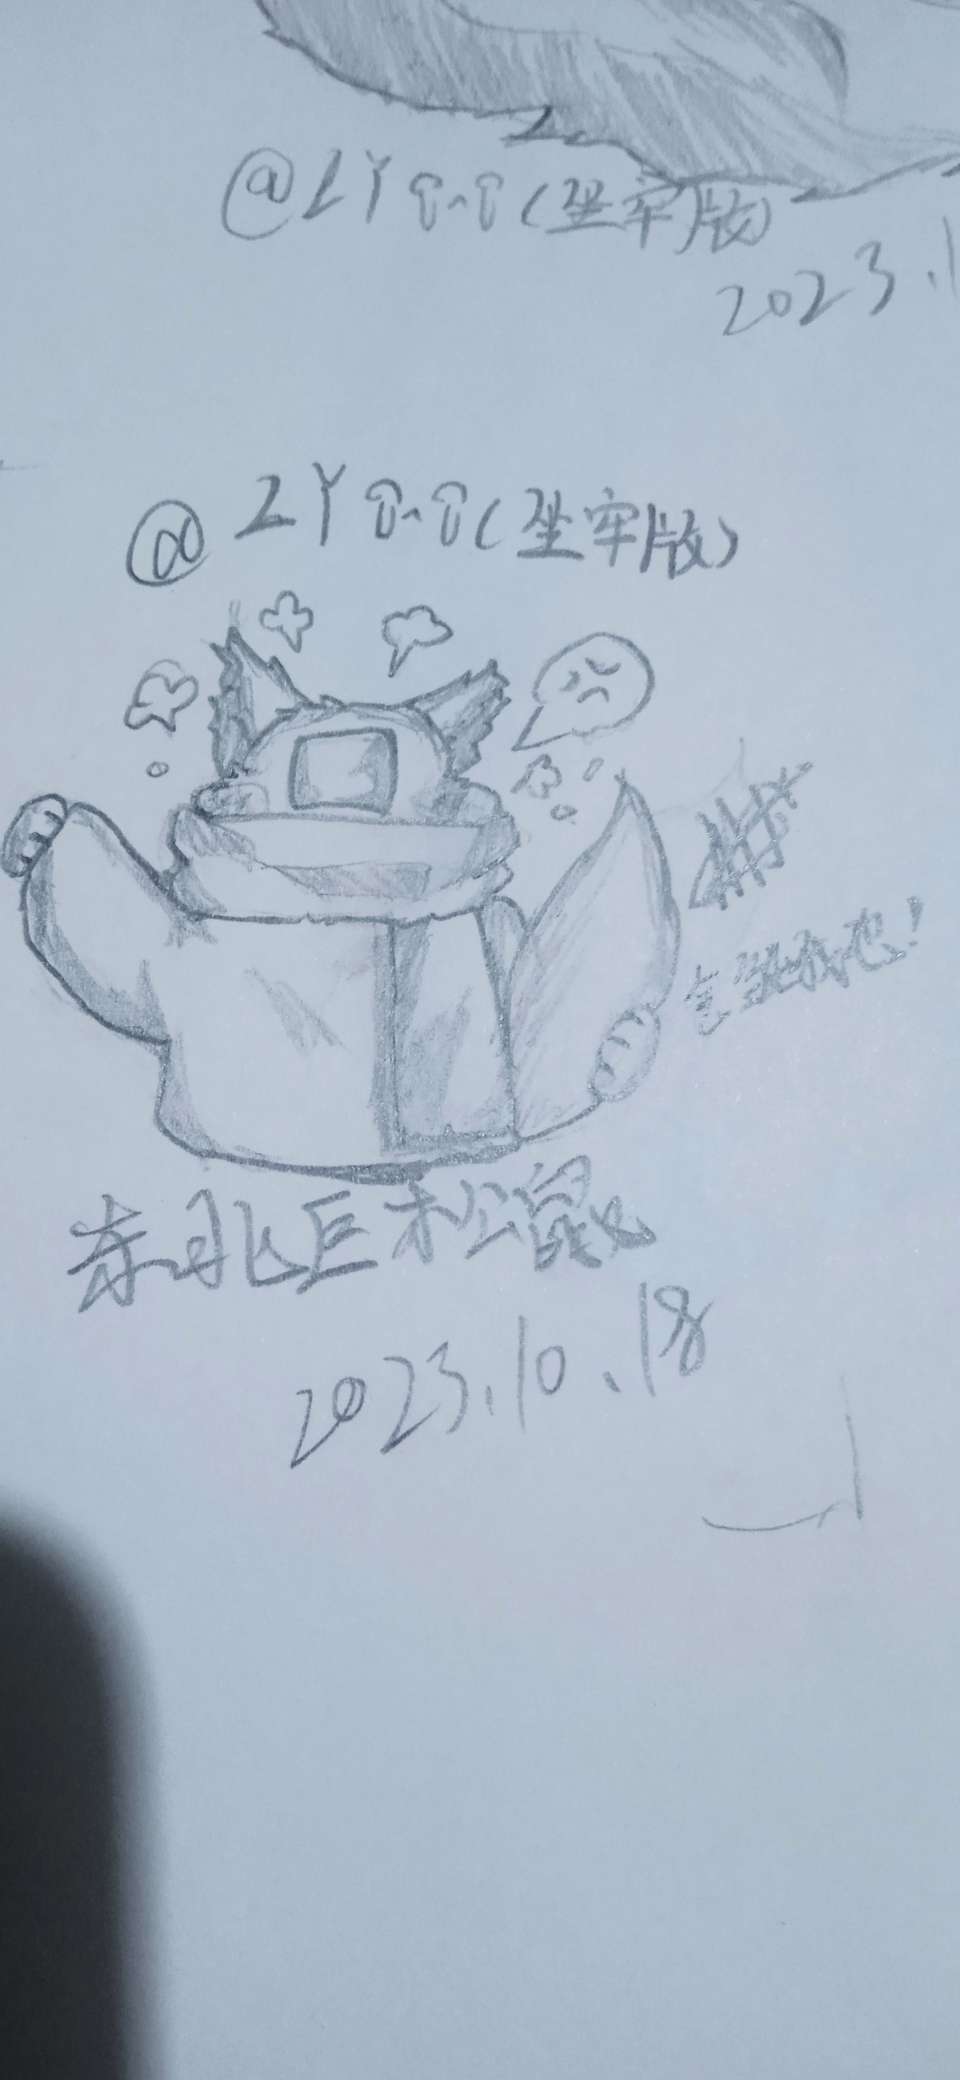 @ZY೧^೧(坐牢版)
2023.1
@ZY೧^೧(坐牢版)
气死我也!
东北巨松鼠
2023.10.18